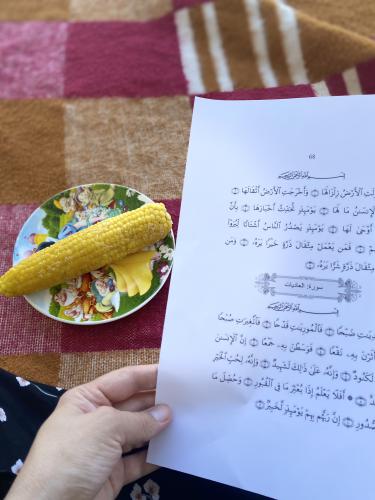 68
بِسۡمِ ٱللَّهِ ٱلرَّحۡمَٰنِ ٱلرَّحِيمِ
ـزِلَتِ ٱلۡأَرۡضُ زِلۡزَالَهَا ١ وَأَخۡرَجَتِ ٱلۡأَرۡضُ أَثۡقَالَهَا ٢
ٱلۡإِنسَٰنُ مَا لَهَا ٣ يَوۡمَئِذٖ تُحَدِّثُ أَخۡبَارَهَا ٤ بِأَنَّ
أَوۡحَىٰ لَهَا ٥ يَوۡمَئِذٖ يَصۡدُرُ ٱلنَّاسُ أَشۡتَاتٗا لِّيُرَوۡاْ
ـهُمۡ ٦ فَمَن يَعۡمَلۡ مِثۡقَالَ ذَرَّةٍ خَيۡرٗا يَرَهُۥ ٧ وَمَن
مِثۡقَالَ ذَرَّةٖ شَرّٗا يَرَهُۥ ٨
سورة العاديات
بِسۡمِ ٱللَّهِ ٱلرَّحۡمَٰنِ ٱلرَّحِيمِ
ـدِيَٰتِ ضَبۡحٗا ١ فَٱلۡمُورِيَٰتِ قَدۡحٗا ٢ فَٱلۡمُغِيرَٰتِ صُبۡحٗا
ـأَثَرۡنَ بِهِۦ نَقۡعٗا ٤ فَوَسَطۡنَ بِهِۦ جَمۡعًا ٥ إِنَّ ٱلۡإِنسَٰنَ
لَكَنُودٞ ٦ وَإِنَّهُۥ عَلَىٰ ذَٰلِكَ لَشَهِيدٞ ٧ وَإِنَّهُۥ لِحُبِّ ٱلۡخَيۡرِ
ـدٌ ٨ ۞ أَفَلَا يَعۡلَمُ إِذَا بُعۡثِرَ مَا فِي ٱلۡقُبُورِ ٩ وَحُصِّلَ مَا
ـصُّدُورِ ١٠ إِنَّ رَبَّهُم بِهِمۡ يَوۡمَئِذٖ لَّخَبِيرُۢ ١١